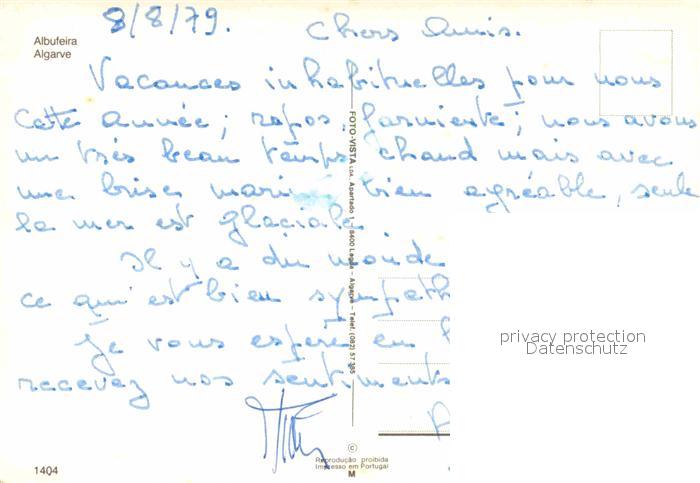 8/8/79.
Albufeira
Algarve
Chers Amis.
Vacances inhabituelles pour nous
Cette année; repos, farniente; nous avons
un très beau temps chaud mais avec
une brise marine bien agréable, seule
la mer est glaciale
Il y a du monde
ce qui est bien sympath
Je vous espère en
recevez nos sentiments
FOTO-VISTA LDA. Apartado 1 - 8400 Lagoa - Algarve - Telef. (082) 57 385
privacy protection
Datenschutz
©
Reprodução proibida
Impresso em Portugal
M
1404